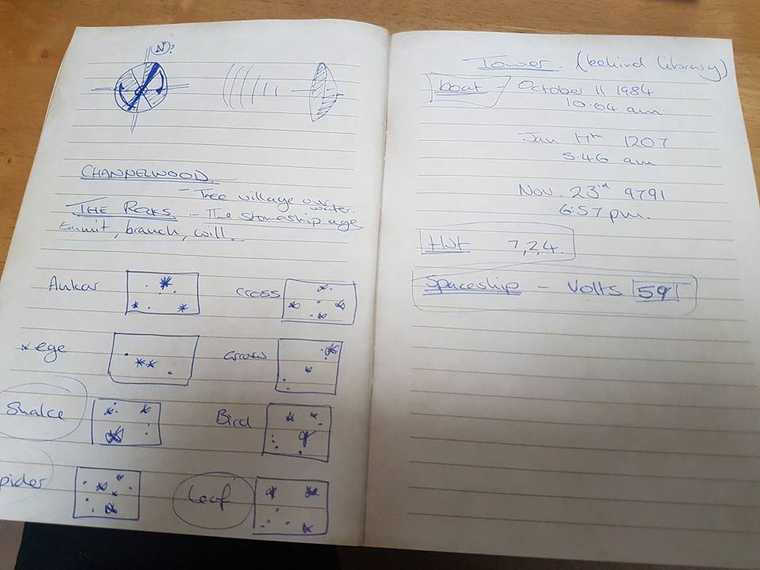 (N)?
CHANNELWOOD
- Tree village over water.
THE ROCKS. - The stoneship age
Emmit, branch, will..
Ankor
cross
eye
Snake
Bird
pider
Leaf
Tower. (behind library)
boat - October 11 1984
10.04 am
Jan 17th 1207
5.46 am
Nov. 23rd 9791
6:57 pm.
Hut 7,2,4.
Spaceship - Volts 59